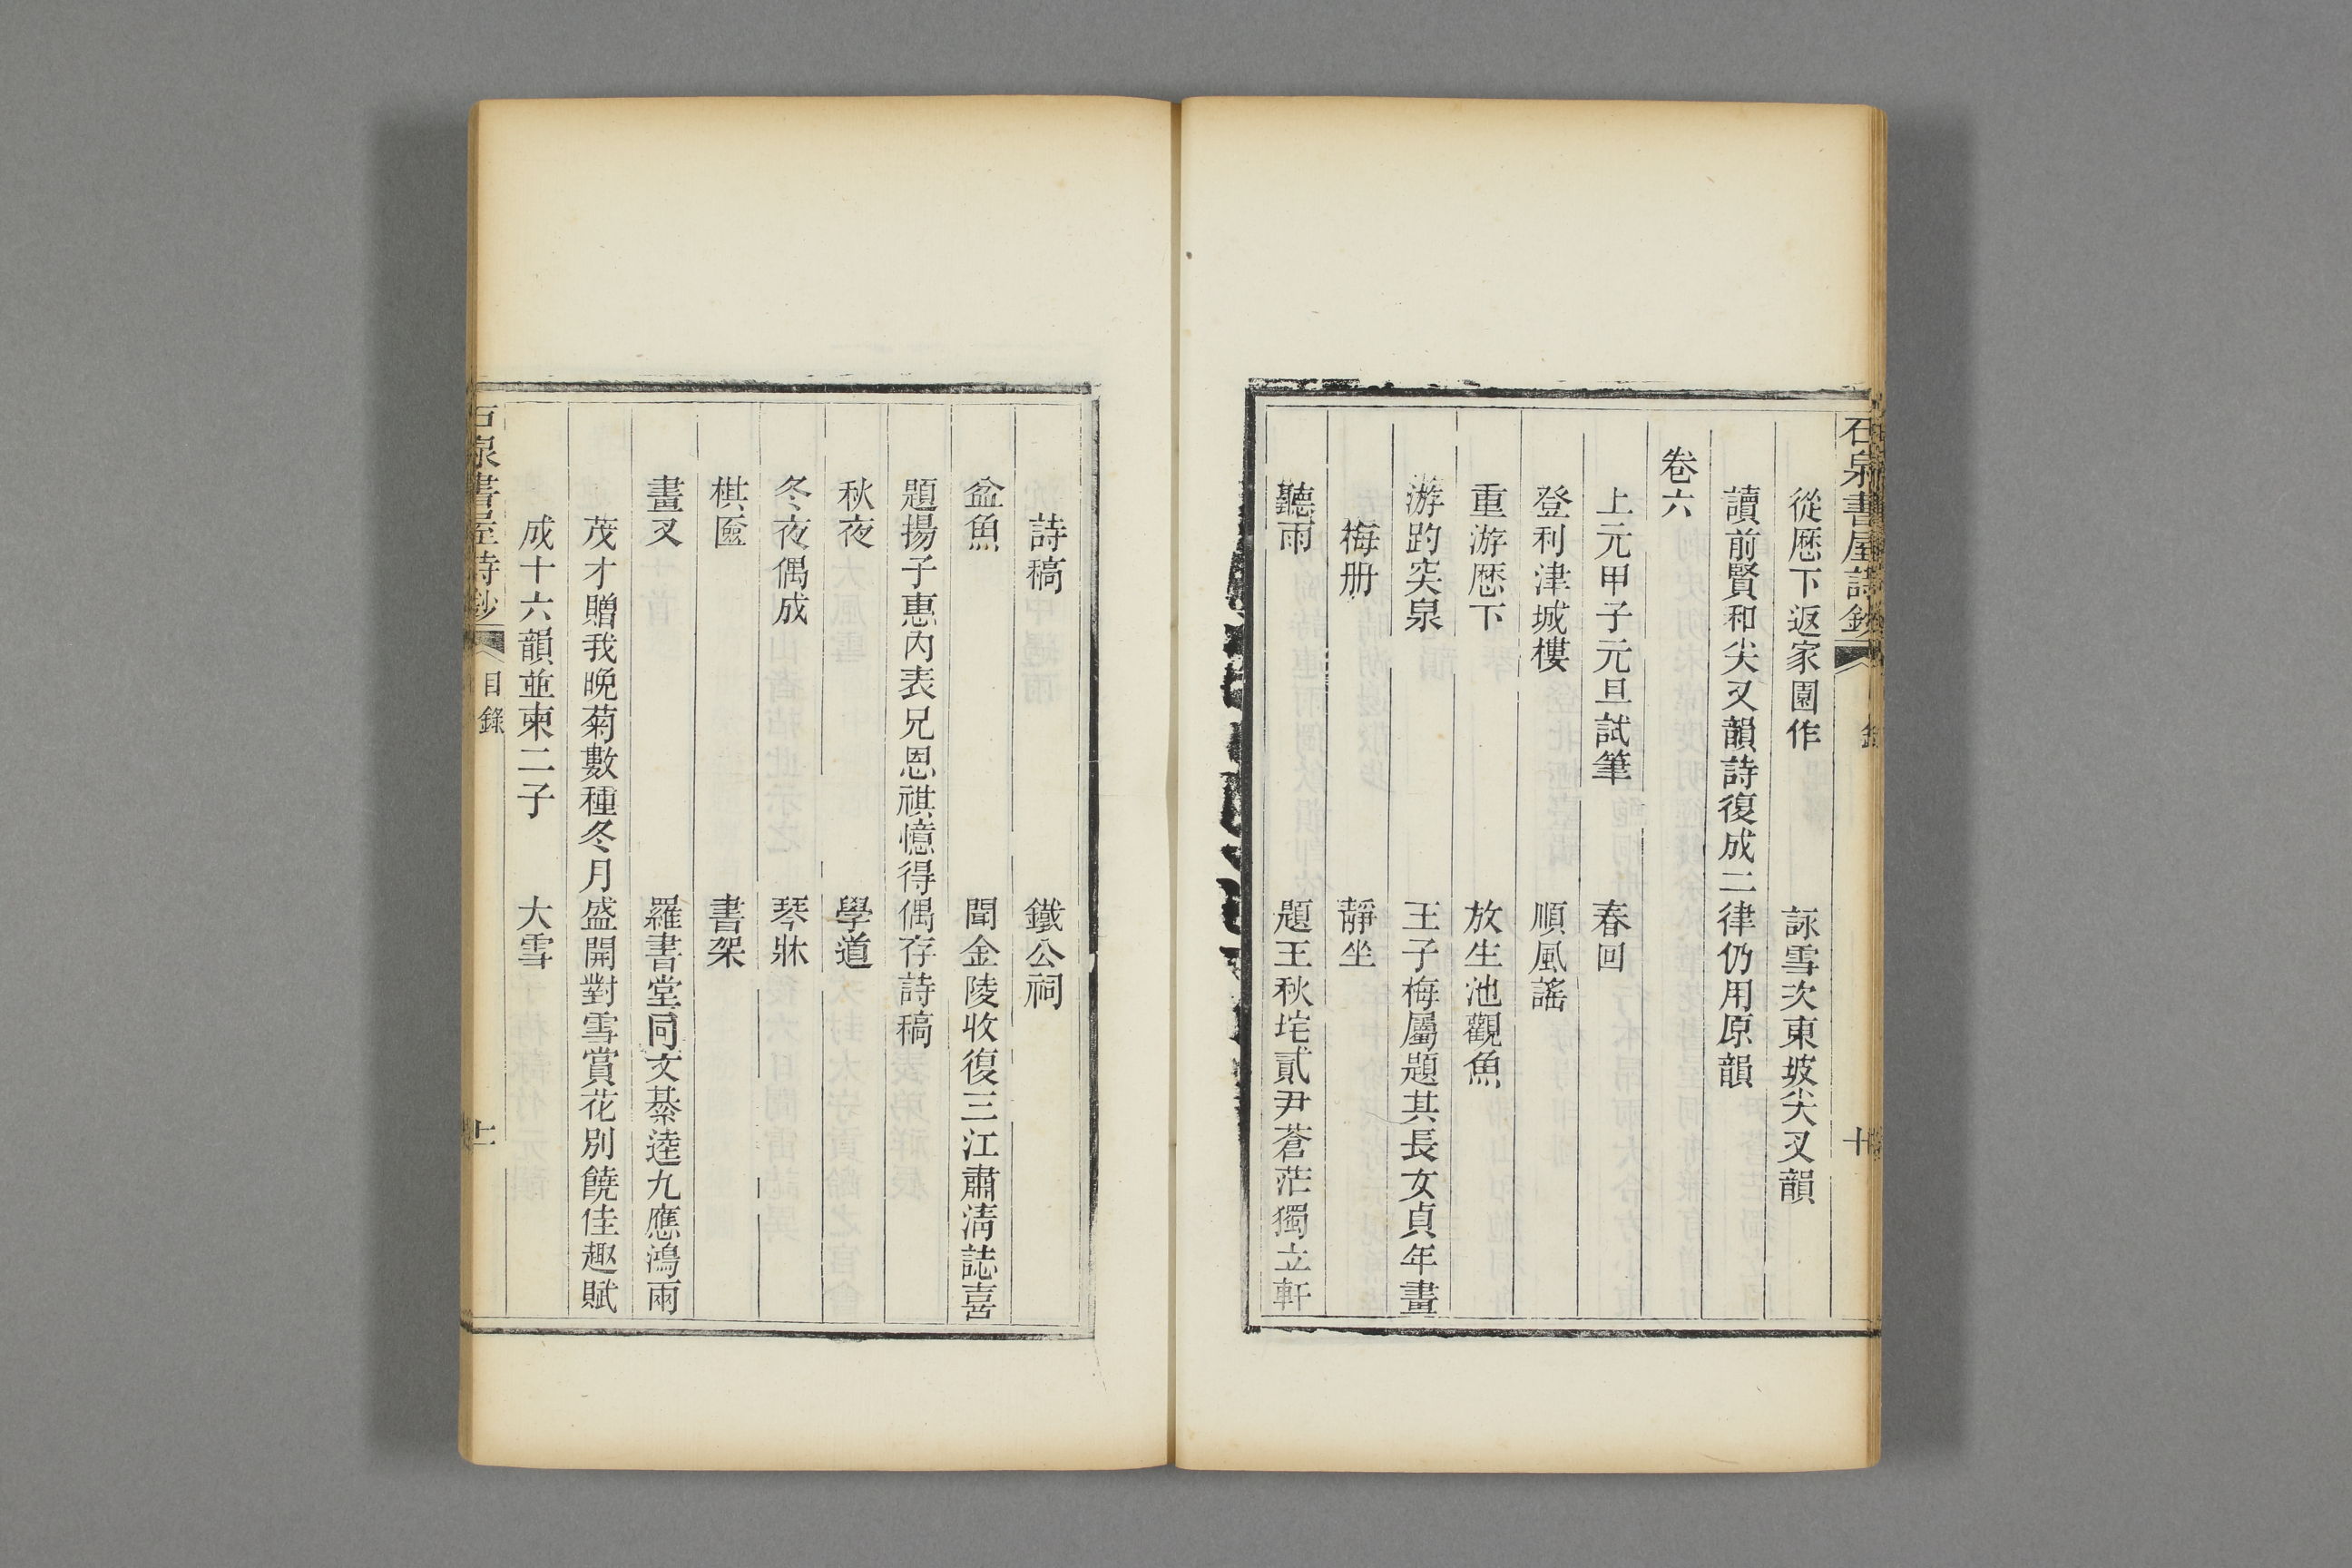 石泉書屋詩鈔
十
從厯下返家園作　詠雪次東坡尖叉韻
讀前賢和尖叉韻詩復成二律仍用原韻
卷六
上元甲子元旦試筆　春回
登利津城樓　順風謠
重游厯下　放生池觀魚
游趵突泉　王子梅屬題其長女貞年畫
梅册　靜坐
聽雨　題王秋垞貳尹蒼茫獨立軒
詩稿　鐵公祠
盆魚　聞金陵收復三江肅淸誌喜
題揚子惠內表兄恩祺憶得偶存詩稿
秋夜　學道
冬夜偶成　琴牀
棋匳　書架
畫叉　羅書堂同文綦逵九應鴻兩
茂才贈我晚菊數種冬月盛開對雪賞花別饒佳趣賦
成十六韻並柬二子　大雪
石泉書屋詩鈔
目錄